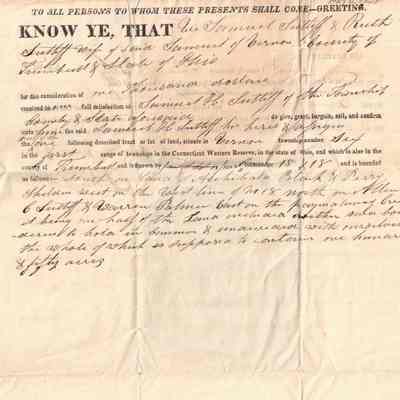 TO ALL PERSONS TO WHOM THESE PRESENTS SHALL COME—GREETING.
KNOW YE, THAT We Samuel Sutliff & Ruth
Sutliff wife of said Samuel of Vernon County of
Trumbull & State of Ohio
for the consideration of one Thousand dollars
received to our full satisfaction of Samuel H. Sutliff of the Township
County & State aforesaid do give, grant, bargain, sell, and confirm
unto him the said Samuel H. Sutliff his heirs & assigns
the following described tract or lot of land, situate in Vernon township number Six
in the first range of townships in the Connecticut Western Reserve, in the state of Ohio, and which is also in the
county of Trumbull and is known by 18 & 18 and is bounded
as follows: South on Clark & Perry
Sheldon west on the West line of No 18 north on Allen
C Sutliff & Palmer East on the
being one half of the Land
to hold in common & undivided with
the whole of which is supposed to contain one hundred
& fifty acres